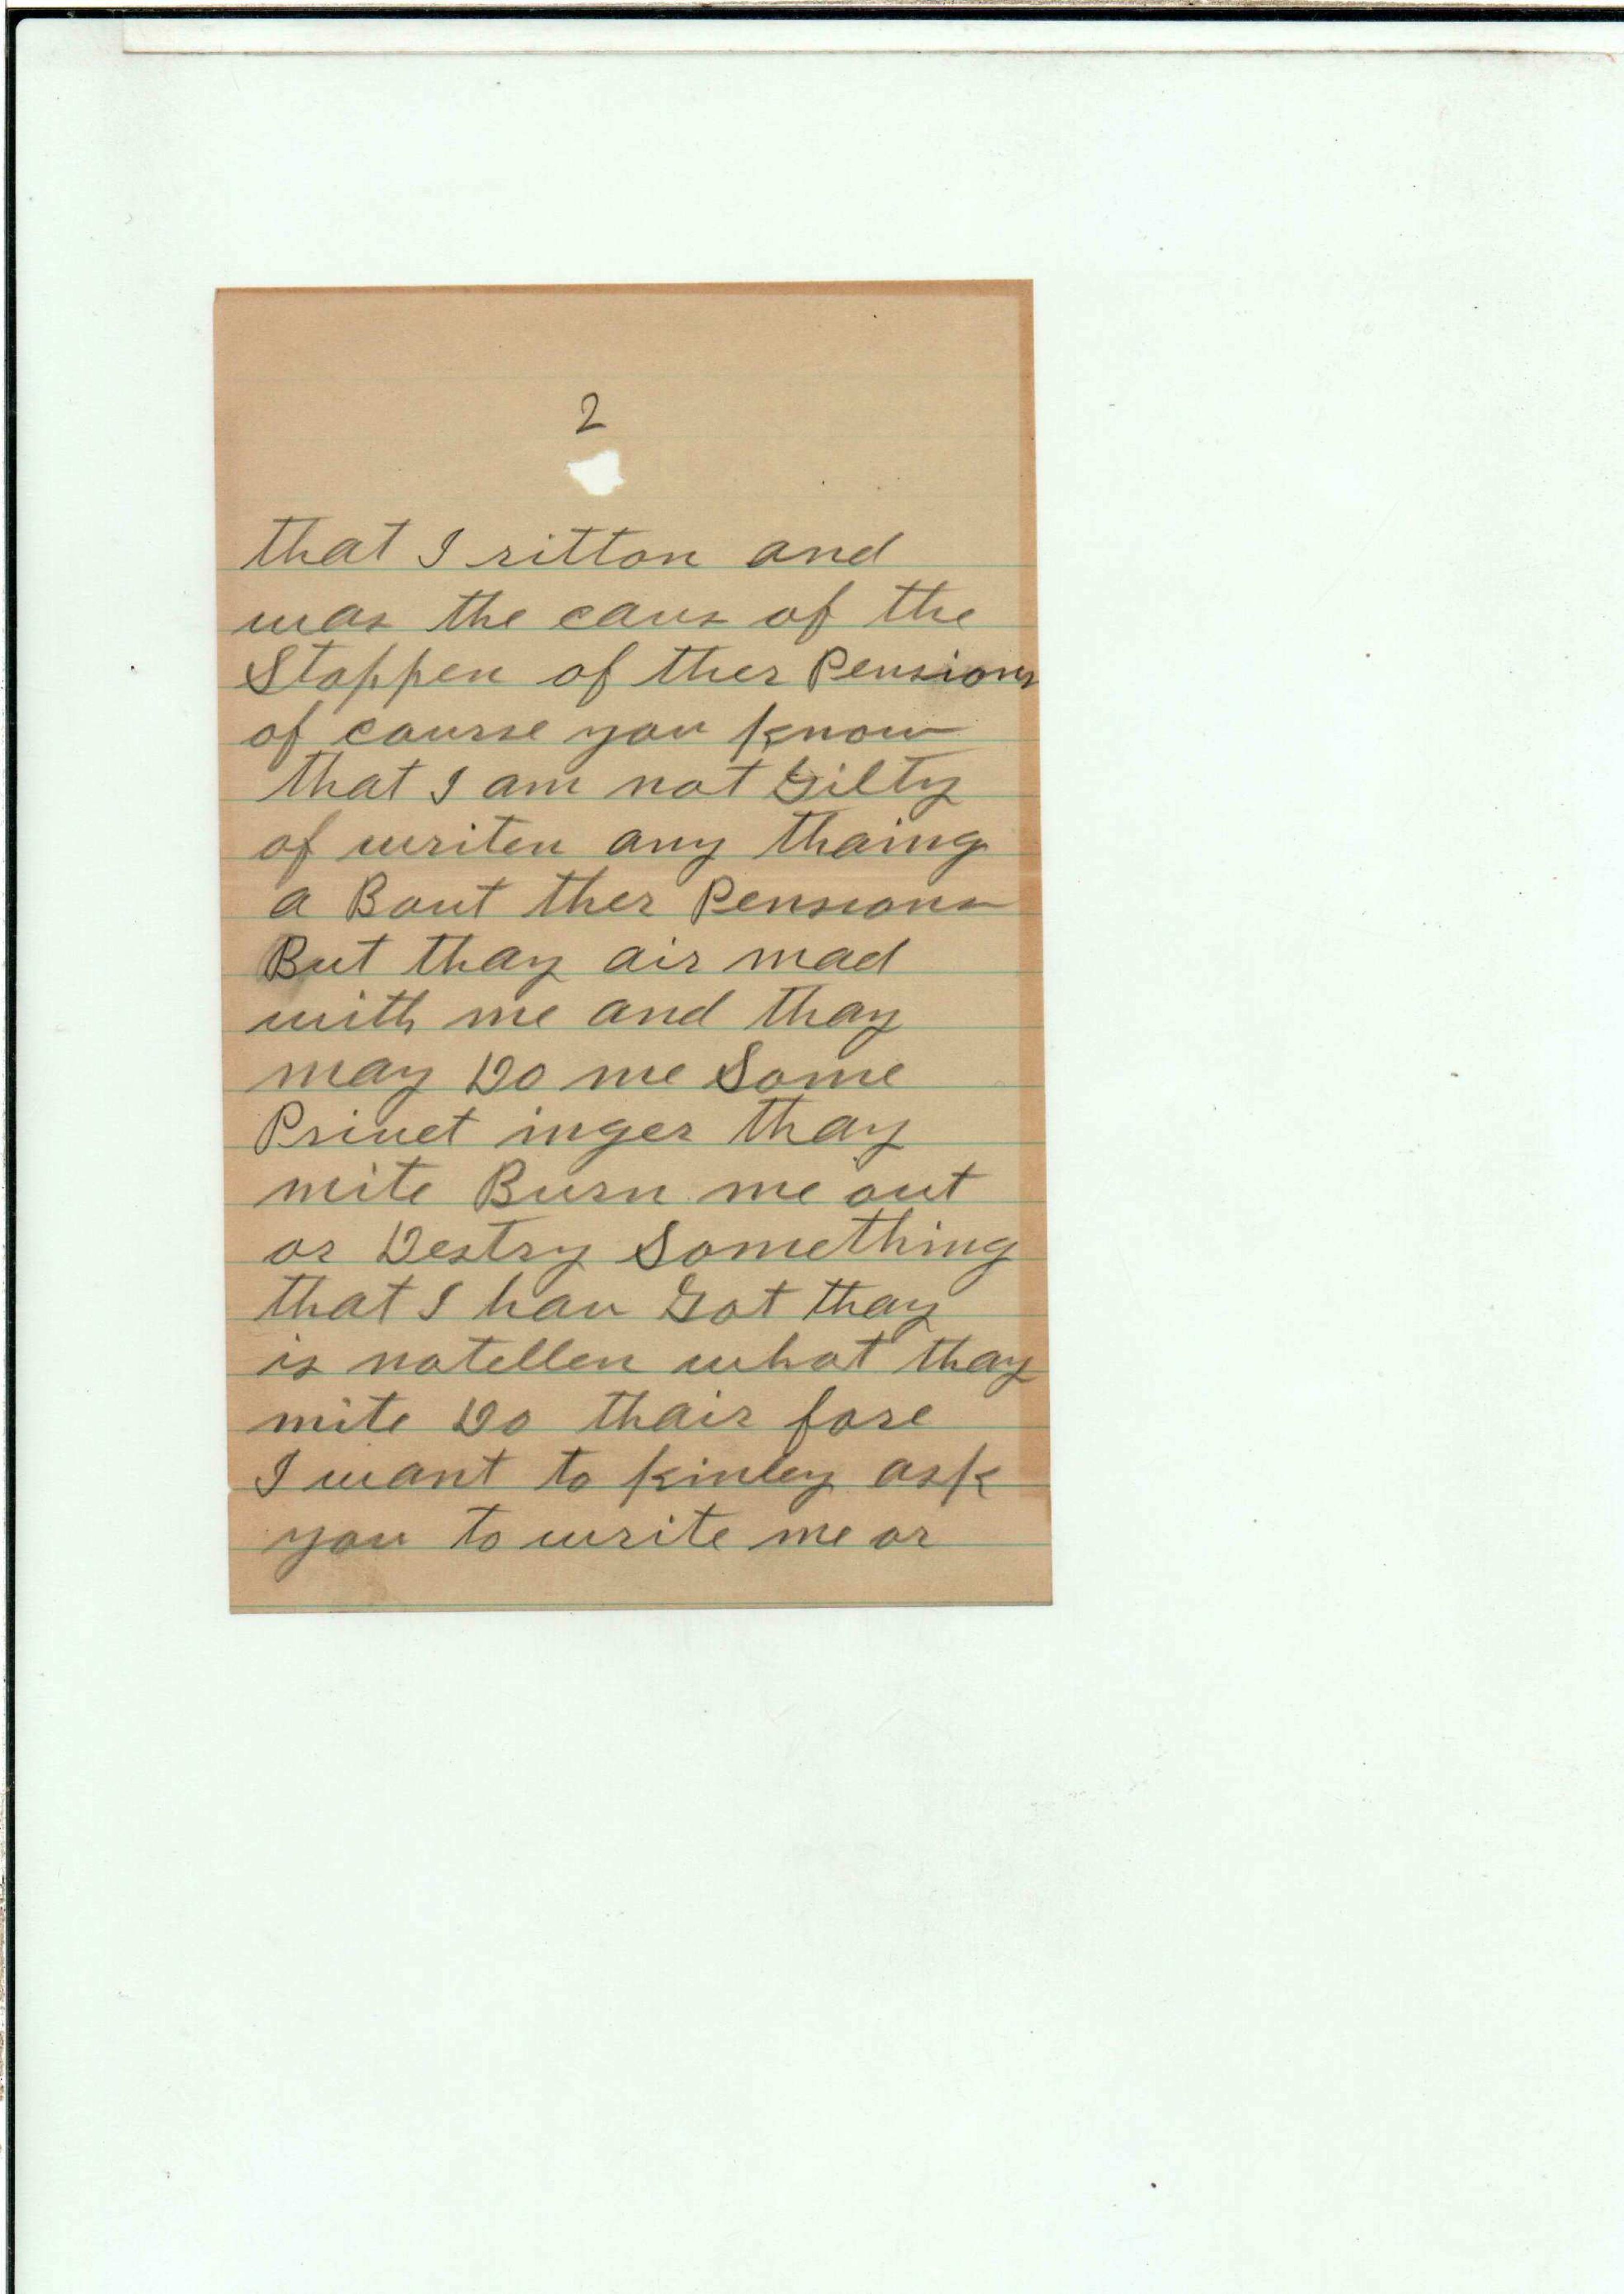 2
that I ritton and
was the caus of the
Stoppen of ther Pensions
of course you know
that I am not Gilty
of writen any thaing
a Bout ther Pensions
But thay air mad
with me and thay
may Do me Some
Privet inger thay
mite Burn me out
or Destry Something
that I hav Got thay
is notellen what thay
mite Do thair fore
I want to kinley ask
you to write me or